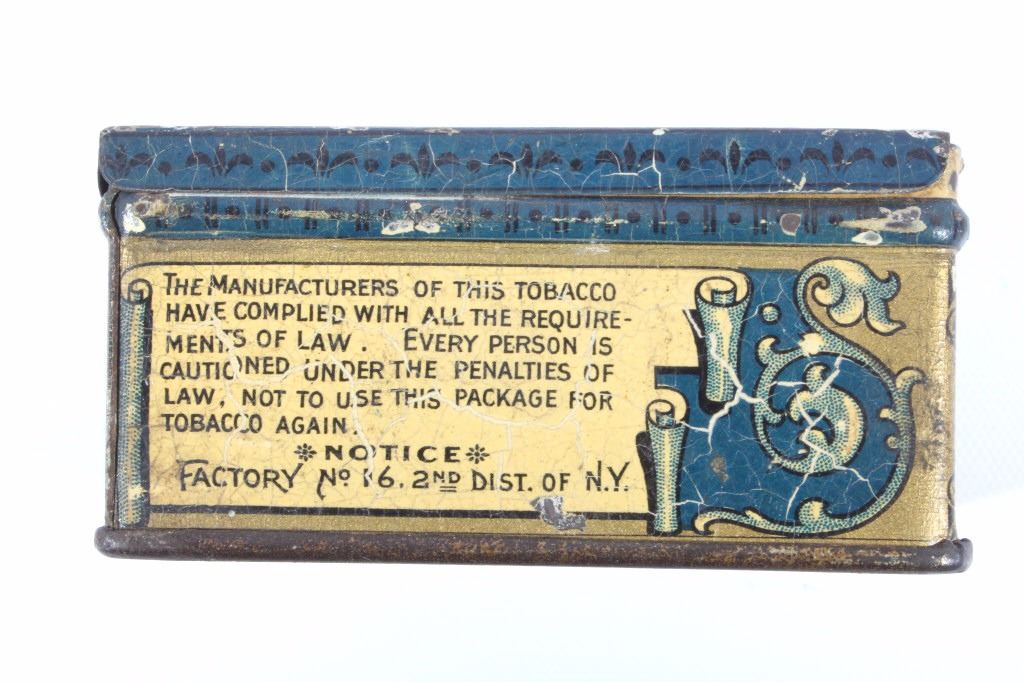 THE MANUFACTURERS OF THIS TOBACCO
HAVE COMPLIED WITH ALL THE REQUIRE-
MENTS OF LAW. EVERY PERSON IS
CAUTIONED UNDER THE PENALTIES OF
LAW, NOT TO USE THIS PACKAGE FOR
TOBACCO AGAIN.
※NOTICE※
FACTORY No 16. 2ND DIST. OF N.Y.